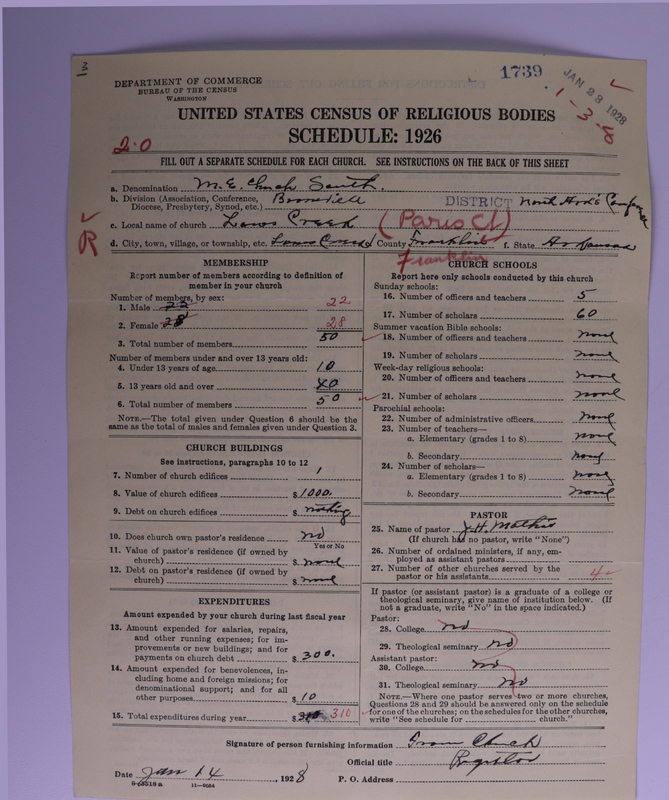 3
1739
JAN 28 1928
1-3-8
DEPARTMENT OF COMMERCE
BUREAU OF THE CENSUS
WASHINGTON
UNITED STATES CENSUS OF RELIGIOUS BODIES
SCHEDULE: 1926
2-0
FILL OUT A SEPARATE SCHEDULE FOR EACH CHURCH. SEE INSTRUCTIONS ON THE BACK OF THIS SHEET
a. Denomination M. E. Church South.
b. Division (Association, Conference, Diocese, Presbytery, Synod, etc.) DISTRICT North
c. Local name of church Creek (Paris Ct)
R
d. City, town, village, or township, etc. Creek County Franklin f. State Arkansas
Franklin
MEMBERSHIP
Report number of members according to definition of
member in your church
Number of members, by sex:
1. Male 22 22
2. Female 28 28
3. Total number of members 50
Number of members under and over 13 years old:
4. Under 13 years of age 10
5. 13 years old and over 40
6. Total number of members 50
NOTE.—The total given under Question 6 should be
same as the total of males and females given under Question 3.
CHURCH BUILDINGS
See instructions, paragraphs 10 to 12
7. Number of church edifices 1
8. Value of church edifices $1000.
9. Debt on church edifices $ nothing
10. Does church own pastor's residence? no
Yes or No
11. Value of pastor's residence (if owned by
church) $ none
12. Debt on pastor's residence (if owned by
church) $ none
EXPENDITURES
Amount expended by your church during last fiscal year
13. Amount expended for salaries, repairs,
and other running expenses; for im-
provements or new buildings; and for
payments on church debt $ 300.
14. Amount expended for benevolences, in-
cluding home and foreign missions; for
denominational support; and for all
other purposes $ 10
15. Total expenditures during year $310 310
CHURCH SCHOOLS
Report here only schools conducted by this church
Sunday schools:
16. Number of officers and teachers 5
17. Number of scholars 60
Summer vacation Bible schools:
18. Number of officers and teachers none
19. Number of scholars none
Week-day religious schools:
20. Number of officers and teachers none
21. Number of scholars none
Parochial schools:
22. Number of administrative officers none
23. Number of teachers—
a. Elementary (grades 1 to 8) none
b. Secondary none
24. Number of scholars—
a. Elementary (grades 1 to 8) none
b. Secondary none
PASTOR
25. Name of pastor J. H. Mathis
(If church has no pastor, write "None")
26. Number of ordained ministers, if any, em-
ployed as assistant pastors
27. Number of other churches served by the
pastor or his assistants 4
If pastor (or assistant pastor) is a graduate of a college or
theological seminary, give name of institution below. (If
not a graduate, write "No" in the space indicated.)
Pastor:
28. College no
29. Theological seminary no
Assistant pastor:
30. College no
31. Theological seminary no
NOTE.—Where one pastor serves two or more churches,
Questions 28 and 29 should be answered only on the schedule
for one of the churches; on the schedules for the other churches,
write "See schedule for church."
Signature of person furnishing information Church
Official title
Date Jan 14, 1928 P. O. Address
11-9084